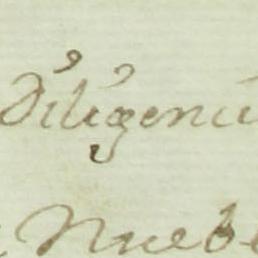 Diligenci
Nueb